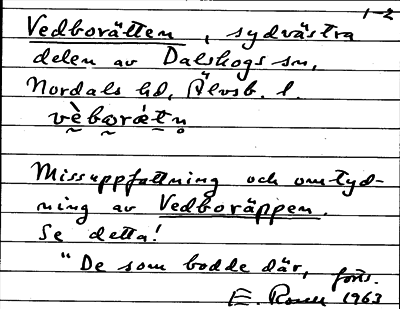 1-2
Vedborätten, sydvästra
delen av Dalskogs sn,
Nordals hd, Älvsb. l.
vèbωrǽtn̥
Missuppfattning och omtyd-
ning av Vedboräppen.
Se detta!
"De som bodde där,
forts.
E. Rosell 1963